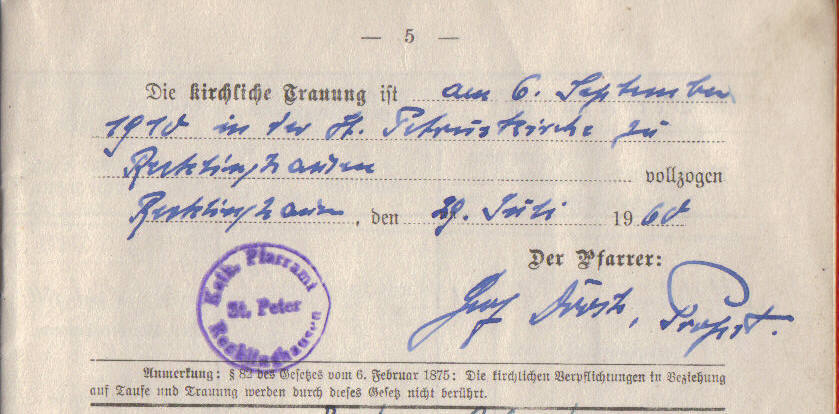 — 5 —
Die kirchliche Trauung ist am 6. September
1910 in der St. Petruskirche zu
Recklinghausen vollzogen
Recklinghausen, den 29. Juli 1960
Der Pfarrer:
Propst.
Kath. Pfarramt
St. Peter
Recklinghausen
Anmerkung: § 82 des Gesetzes vom 6. Februar 1875: Die kirchlichen Verpflichtungen in Beziehung
auf Taufe und Trauung werden durch dieses Gesetz nicht berührt.